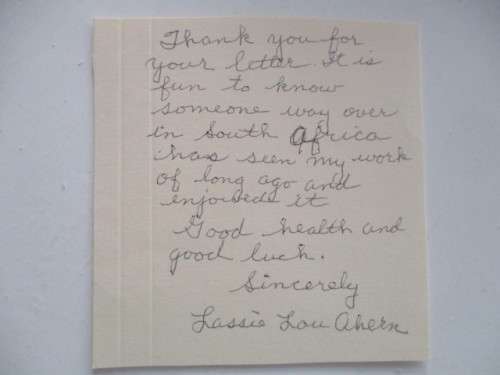 Thank you for
your letter. It is
fun to know
someone way over
in South Africa
has seen my work
of long ago and
enjoyed it
Good health and
good luck.
Sincerely
Lassie Lou Ahern